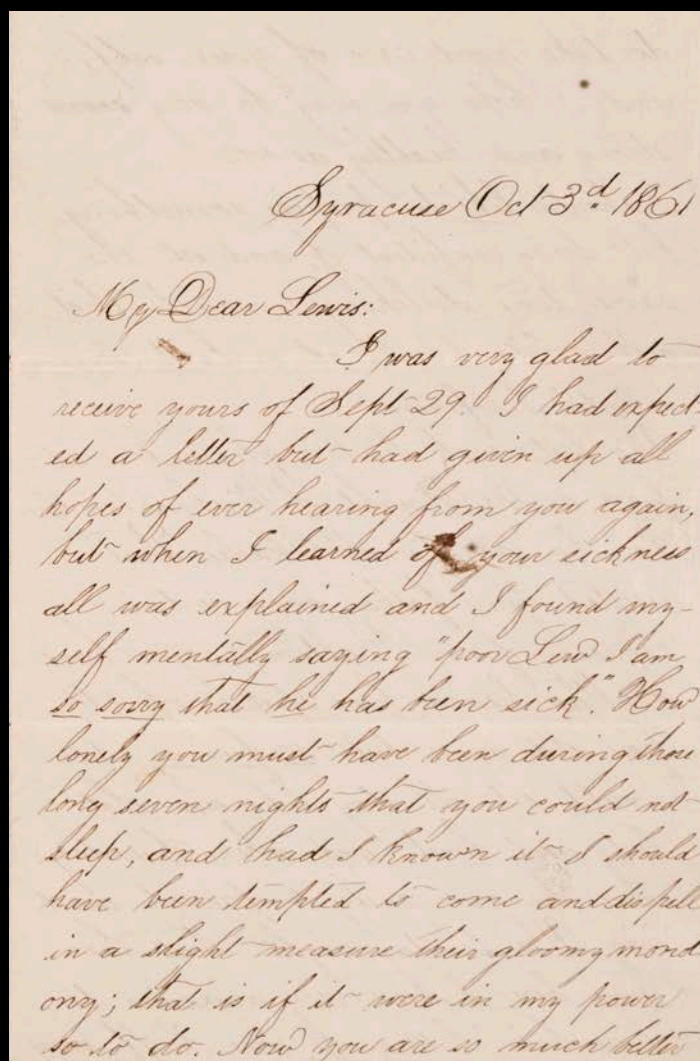 Syracuse Oct 3d 1861
My Dear Lewis:
I was very glad to
receive yours of Sept 29. I had expect
ed a letter but had given up all
hopes of ever hearing from you again,
but when I learned of your sickness
all was explained and I found my-
self mentally saying "poor Lew I am
so sorry that he has been sick". How
lonely you must have been during those
long seven nights that you could not
sleep, and had I known it I should
have been tempted to come and dispell
in a slight measure their gloomy monot
ony; that is if it were in my power
so to do. Now you are so much better